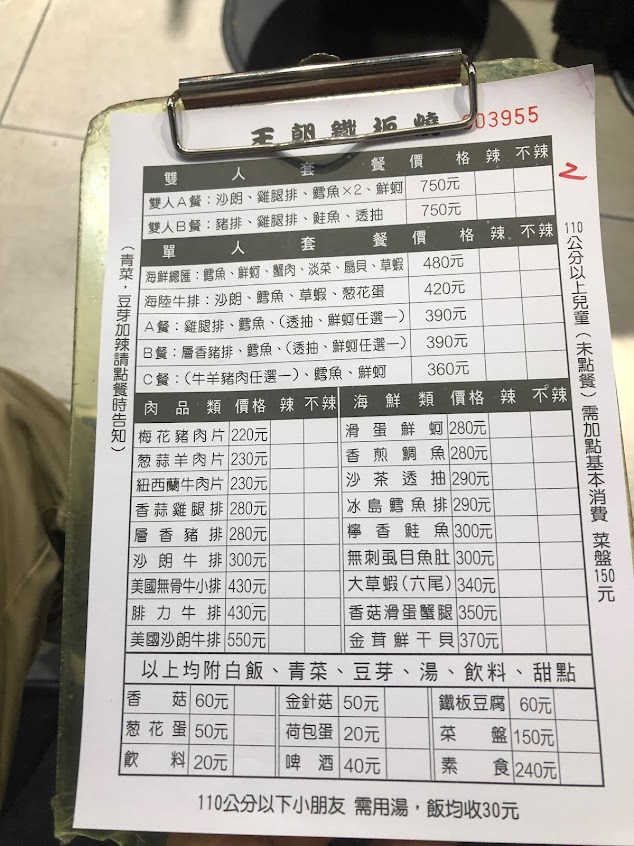 王朝鐵板燒 603955
雙人套餐 價格 辣 不辣
2
雙人A餐：沙朗、雞腿排、鱈魚×2、鮮蚵 750元
雙人B餐：豬排、雞腿排、鮭魚、透抽 750元
單人套餐 價格 辣 不辣
海鮮總匯：鱈魚、鮮蚵、蟹肉、淡菜、扇貝、草蝦 480元
海陸牛排：沙朗、鱈魚、草蝦、葱花蛋 420元
A餐：雞腿排、鱈魚、(透抽、鮮蚵任選一) 390元
B餐：層香豬排、鱈魚、(透抽、鮮蚵任選一) 390元
C餐：(牛羊豬肉任選一)、鱈魚、鮮蚵 360元
肉品類 價格 辣 不辣 海鮮類 價格 辣 不辣
梅花豬肉片 220元 滑蛋鮮蚵 280元
葱蒜羊肉片 230元 香煎鯛魚 280元
紐西蘭牛肉片 230元 沙茶透抽 290元
香蒜雞腿排 280元 冰島鱈魚排 290元
層香豬排 280元 檸香鮭魚 300元
沙朗牛排 300元 無刺虱目魚肚 300元
美國無骨牛小排 430元 大草蝦(六尾) 340元
腓力牛排 430元 香菇滑蛋蟹腿 350元
美國沙朗牛排 550元 金茸鮮干貝 370元
以上均附白飯、青菜、豆芽、湯、飲料、甜點
香菇 60元 金針菇 50元 鐵板豆腐 60元
葱花蛋 50元 荷包蛋 20元 菜盤 150元
飲料 20元 啤酒 40元 素食 240元
110公分以下小朋友 需用湯，飯均收30元
(青菜，豆芽加辣請點餐時告知)
110公分以上兒童(未點餐)需加點基本消費 菜盤150元